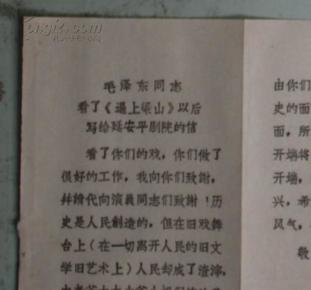 毛泽东同志
看了《逼上梁山》以后
写给延安平剧院的信
看了你们的戏，你们做了
很好的工作，我向你们致謝，
并請代向演員同志们致謝！历
史是人民創造的，但在旧戏舞
台上（在一切离开人民的旧文
学旧艺术上）人民却成了渣滓，
由你们
史的面
面，所
开端将
开端，
兴，希
风气，
敬